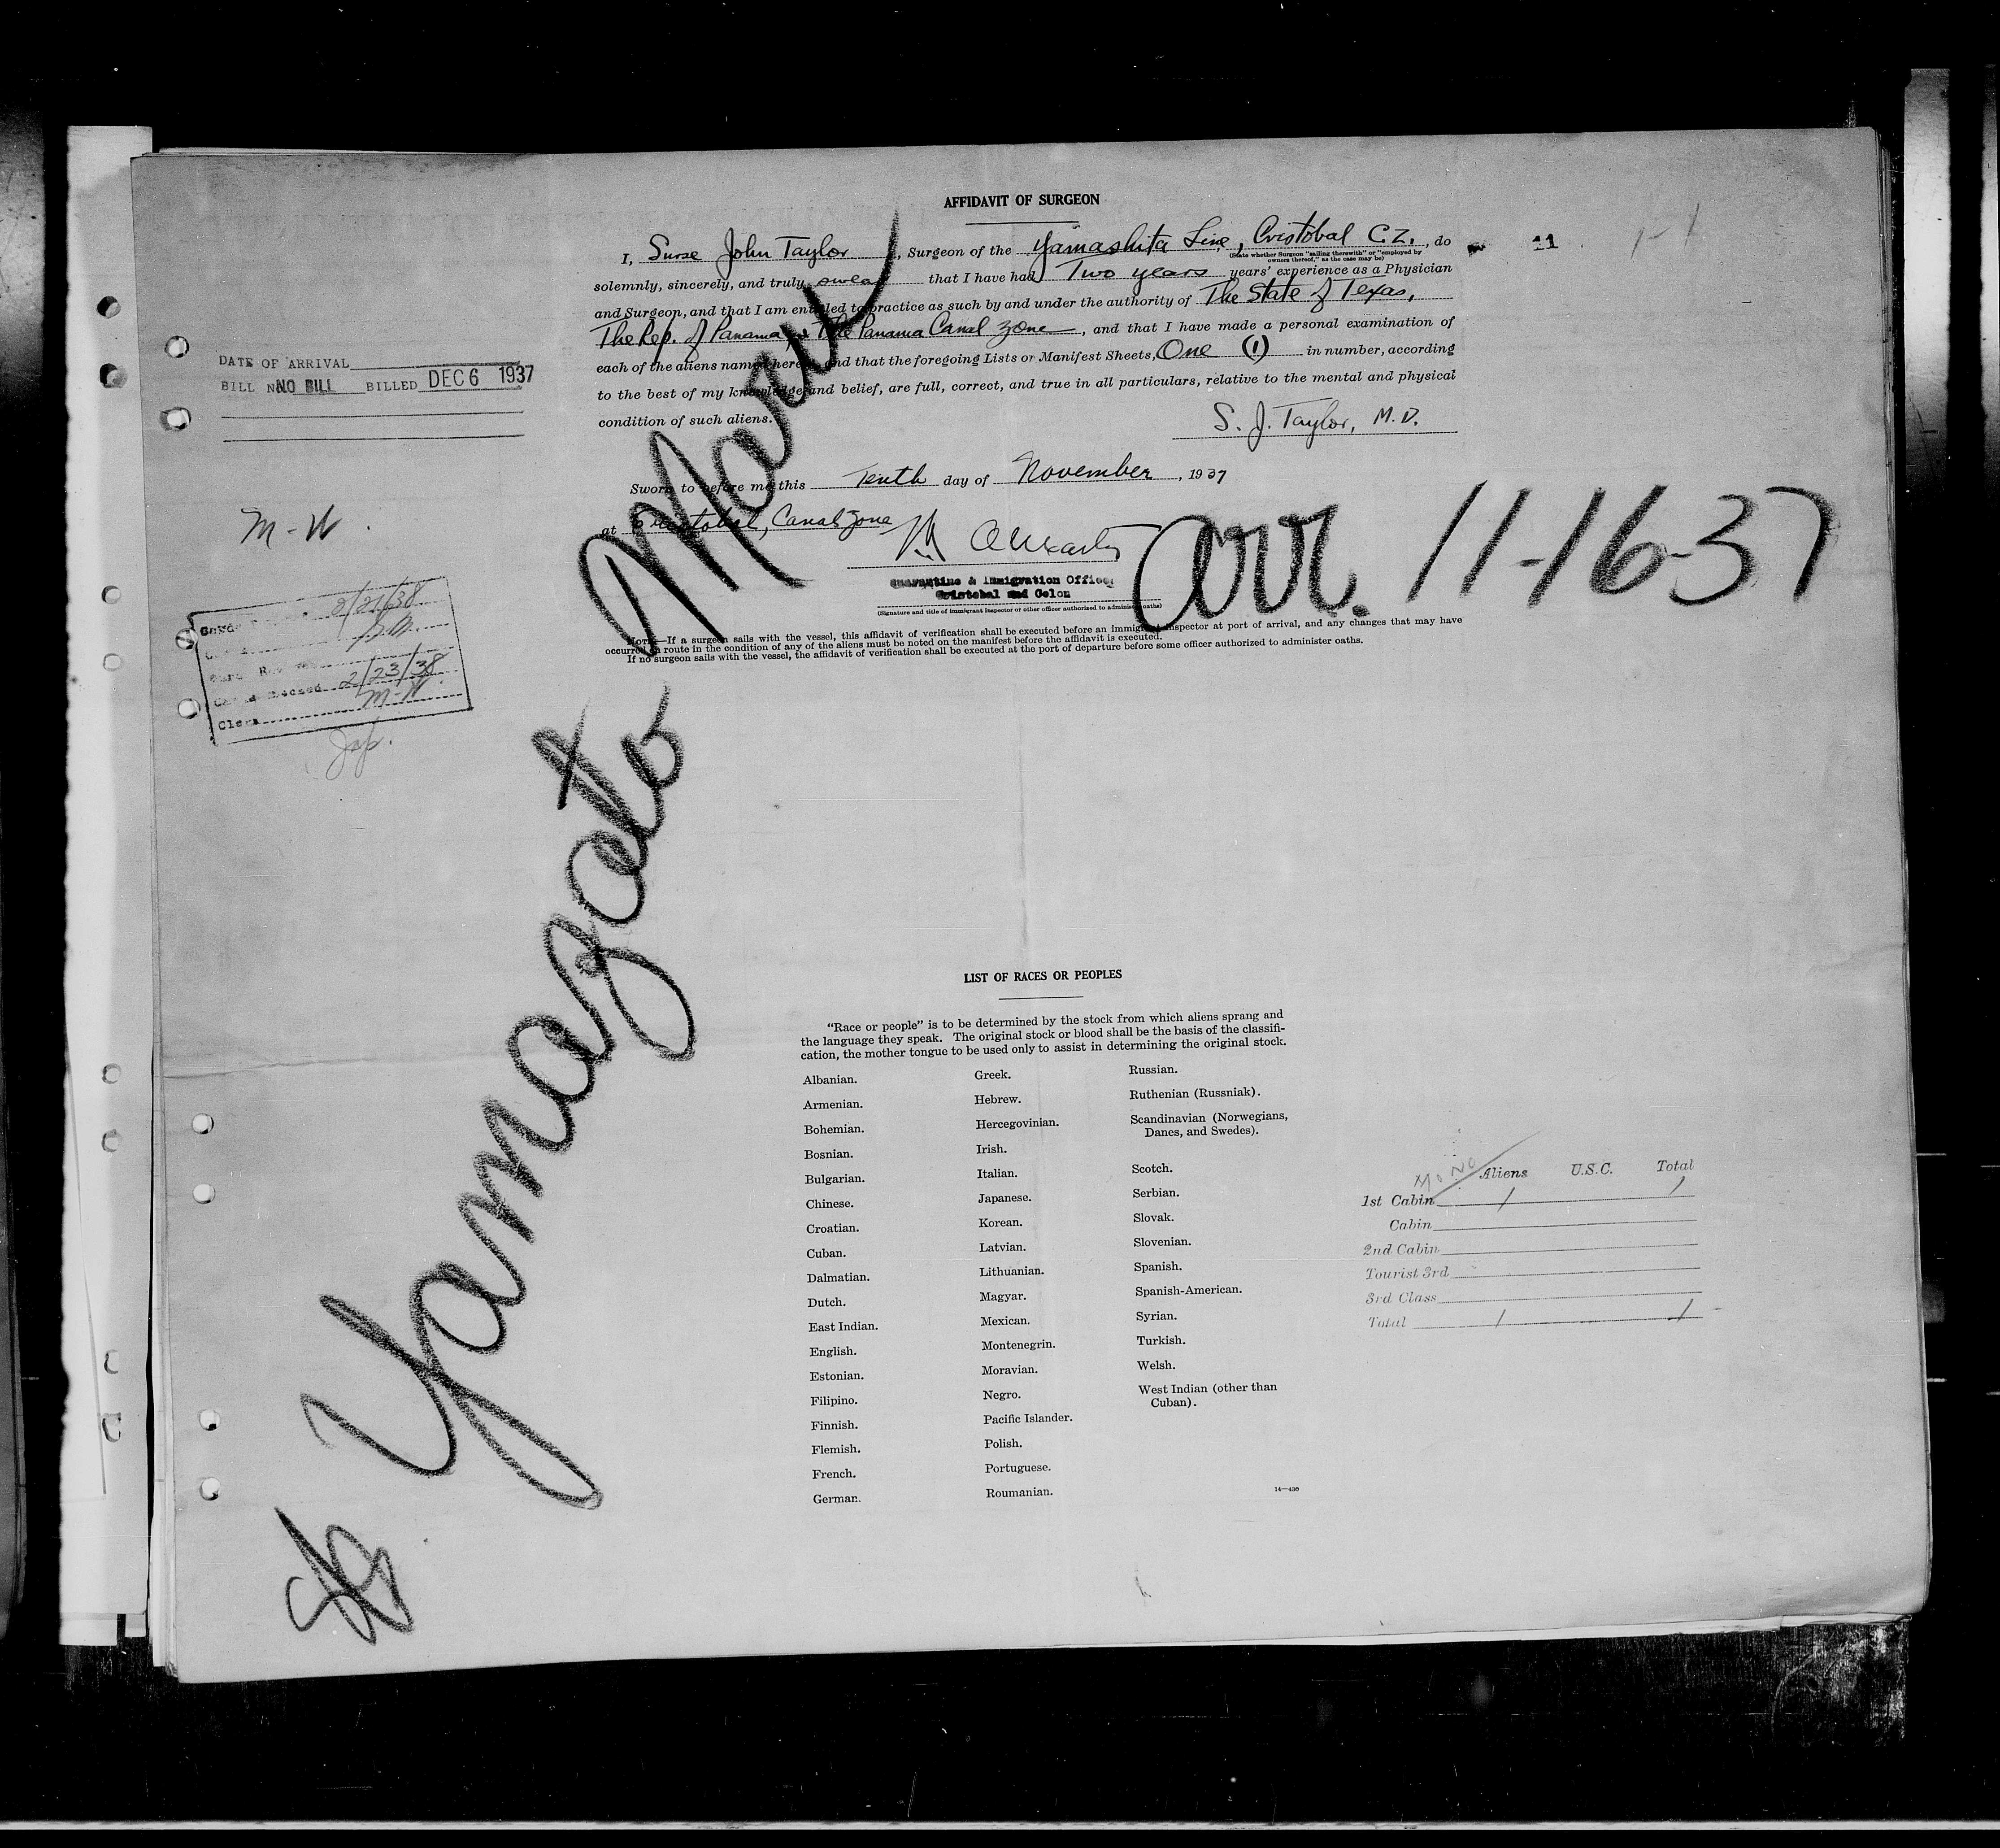 AFFIDAVIT OF SURGEON
I, Surse John Taylor, Surgeon of the Yamashita Line, Cristobal C.Z., do
(State whether Surgeon "sailing therewith" or "employed by owners thereof," as the case may be)
solemnly, sincerely, and truly swear that I have had Two years years' experience as a Physician
and Surgeon, and that I am entitled to practice as such by and under the authority of The State of Texas,
The Rep. of Panama, & The Panama Canal Zone, and that I have made a personal examination of
each of the aliens named herein, and that the foregoing Lists or Manifest Sheets, One (1) in number, according
to the best of my knowledge and belief, are full, correct, and true in all particulars, relative to the mental and physical
condition of such aliens.
S. J. Taylor, M.D.
Sworn to before me this Tenth day of November, 1937
at Cristobal, Canal Zone
Quarantine & Immigration Officer
Cristobal and Colon
(Signature and title of immigrant inspector or other officer authorized to administer oaths)
NOTE.—If a surgeon sails with the vessel, this affidavit of verification shall be executed before an immigrant inspector at port of arrival, and any changes that may have
occurred en route in the condition of any of the aliens must be noted on the manifest before the affidavit is executed.
If no surgeon sails with the vessel, the affidavit of verification shall be executed at the port of departure before some officer authorized to administer oaths.
11
1-1
DATE OF ARRIVAL
BILL No. NO BILL BILLED DEC 6 1937
M-W.
2/21/38
Cards Checked 2/23/38
Clerk M-W.
Jap.
SS. Yamazato Maru
arr. 11-16-37
LIST OF RACES OR PEOPLES
"Race or people" is to be determined by the stock from which aliens sprang and
the language they speak. The original stock or blood shall be the basis of the classifi-
cation, the mother tongue to be used only to assist in determining the original stock.
Albanian.
Armenian.
Bohemian.
Bosnian.
Bulgarian.
Chinese.
Croatian.
Cuban.
Dalmatian.
Dutch.
East Indian.
English.
Estonian.
Filipino.
Finnish.
Flemish.
French.
German.
Greek.
Hebrew.
Hercegovinian.
Irish.
Italian.
Japanese.
Korean.
Latvian.
Lithuanian.
Magyar.
Mexican.
Montenegrin.
Moravian.
Negro.
Pacific Islander.
Polish.
Portuguese.
Roumanian.
Russian.
Ruthenian (Russniak).
Scandinavian (Norwegians,
Danes, and Swedes).
Scotch.
Serbian.
Slovak.
Slovenian.
Spanish.
Spanish-American.
Syrian.
Turkish.
Welsh.
West Indian (other than
Cuban).
14—430
Aliens U.S.C. Total
1st Cabin 1 1
Cabin
2nd Cabin
Tourist 3rd
3rd Class
Total 1 1